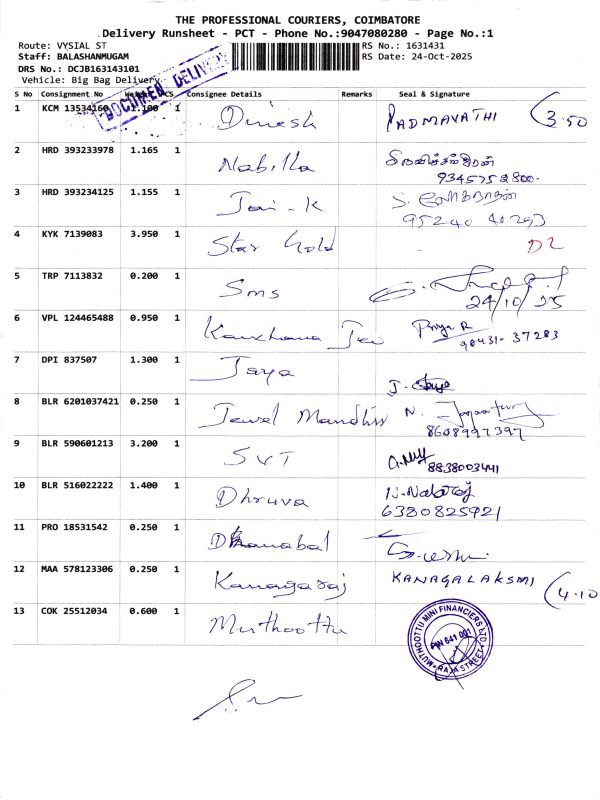 THE PROFESSIONAL COURIERS, COIMBATORE
Delivery Runsheet - PCT - Phone No.:9047080280 - Page No.:1
Route: VYSIAL ST RS No.: 1631431
Staff: BALASHANMUGAM RS Date: 24-Oct-2025
DRS No.: DCJB163143101
Vehicle: Big Bag Delivery
DOCUMEN DELIVERY
S No Consignment No Weight PCS Consignee Details Remarks Seal & Signature
1 KCM 13534160 1.100 1 Dinesh PADMAVATHI 3.50
2 HRD 393233978 1.165 1 Nabilla
9345752800.
3 HRD 393234125 1.155 1 Jai-K S.
95240 40293
4 KYK 7139083 3.950 1 Star Gold D2
5 TRP 7113832 0.200 1 Sms
24/10/25
6 VPL 124465488 0.950 1 Kanchana Priya R
90431-37283
7 DPI 837507 1.300 1 Jaya J. Jaya
8 BLR 6201037421 0.250 1 Jewel N.
8608997397
9 BLR 590601213 3.200 1 SVT
8838003441
10 BLR 516022222 1.400 1 Dhruva N. Nataraj
6380825921
11 PRO 18531542 0.250 1 Dhanabal
12 MAA 578123306 0.250 1 Kanagaraj KANAGALAKSMI 4.10
13 COK 25512034 0.600 1 Muthoottu
MUTHOOTTU MINI FINANCIERS LTD.
PIN 641 001
RAJA STREET